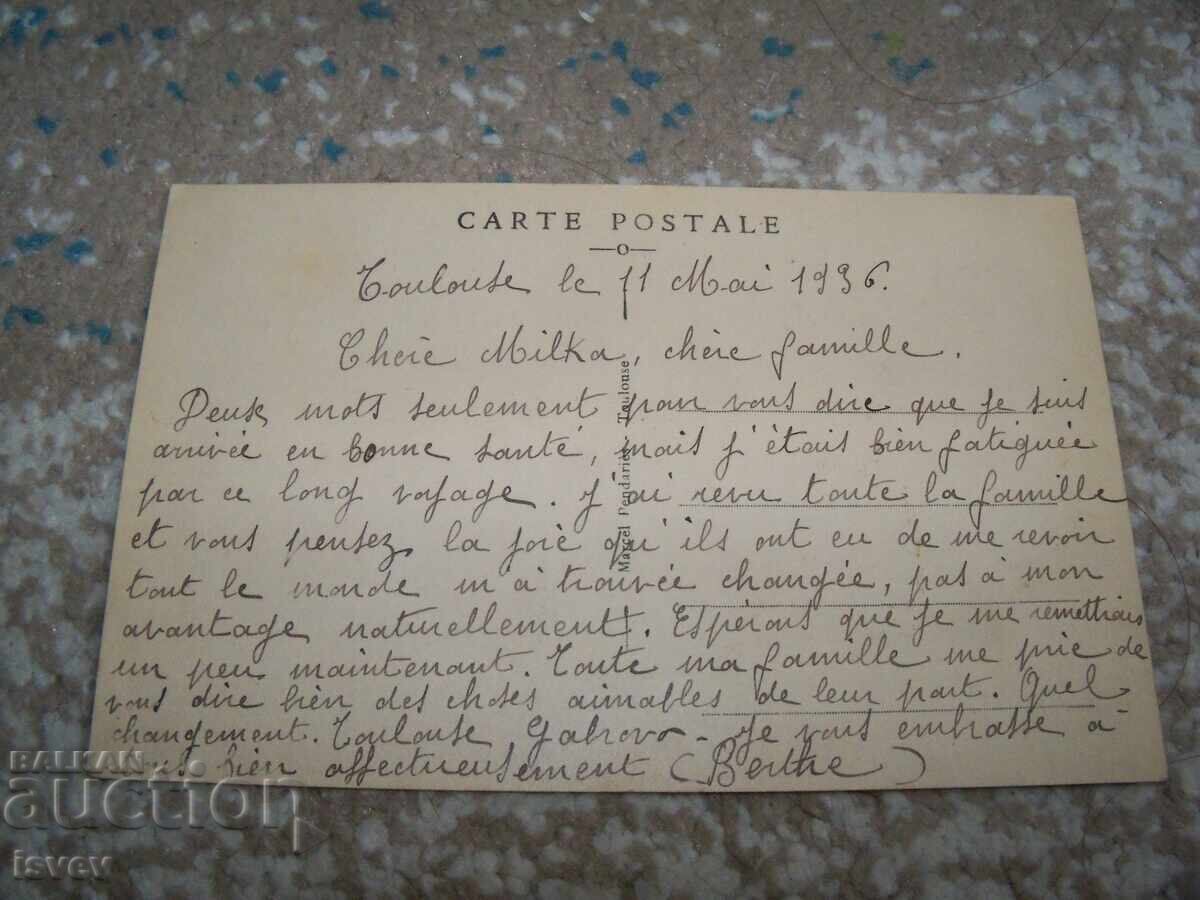 CARTE POSTALE
Toulouse le 11 Mai 1936.
Chère Milka, chère famille.
Deux mots seulement pour vous dire que je suis
arrivée en bonne santé, mais j'étais bien fatiguée
par ce long voyage. J'ai revu toute la famille
et vous pensez la joie qu'ils ont eu de me revoir
tout le monde m'a trouvée changée, pas à mon
avantage naturellement. Espérons que je me remettrais
un peu maintenant. Toute ma famille me prie de
vous dire bien des choses aimables de leur part. Quel
changement. Toulouse Gabrovo - Je vous embrasse à
tous bien affectueusement (Berthe)
Marcel Pendaries, Toulouse
BALKAN
auction
isvev